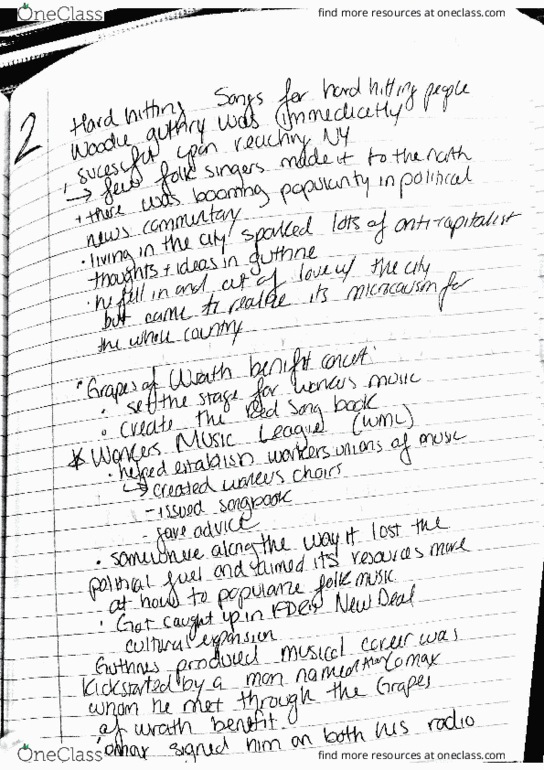 OneClass find more resources at oneclass.com
2
Hard hitting Songs for hard hitting people
Woodie guthry was immedicetly
sucessful upon reaching NY
→ few folk singers made it to the north
+ there was booming popularity in political
news commentary
• living in the city sparked lots of anti-capitalist
thoughts + ideas in guthrie
• he fell in and out of love w/ the city
but came to realize its microcausm for
the whole country
• Grapes of Wrath benifit concert
• set the stage for workers music
• create the Red Song book
* Workers Music League (WML)
• helped establish workers unions of music
↳ created workers choirs
- issued songbook
- gave advice
• somewhere along the way it lost the
political fuel and aimed its resources more
at how to popularize folk music
• Got caught up in FDR's New Deal
cultural expansion
Guthries produced musical career was
kickstarted by a man named Alan Lomax
whom he met through the Grapes
of wrath benefit.
lomax signed him on both his radio
OneClass find more resources at oneclass.com